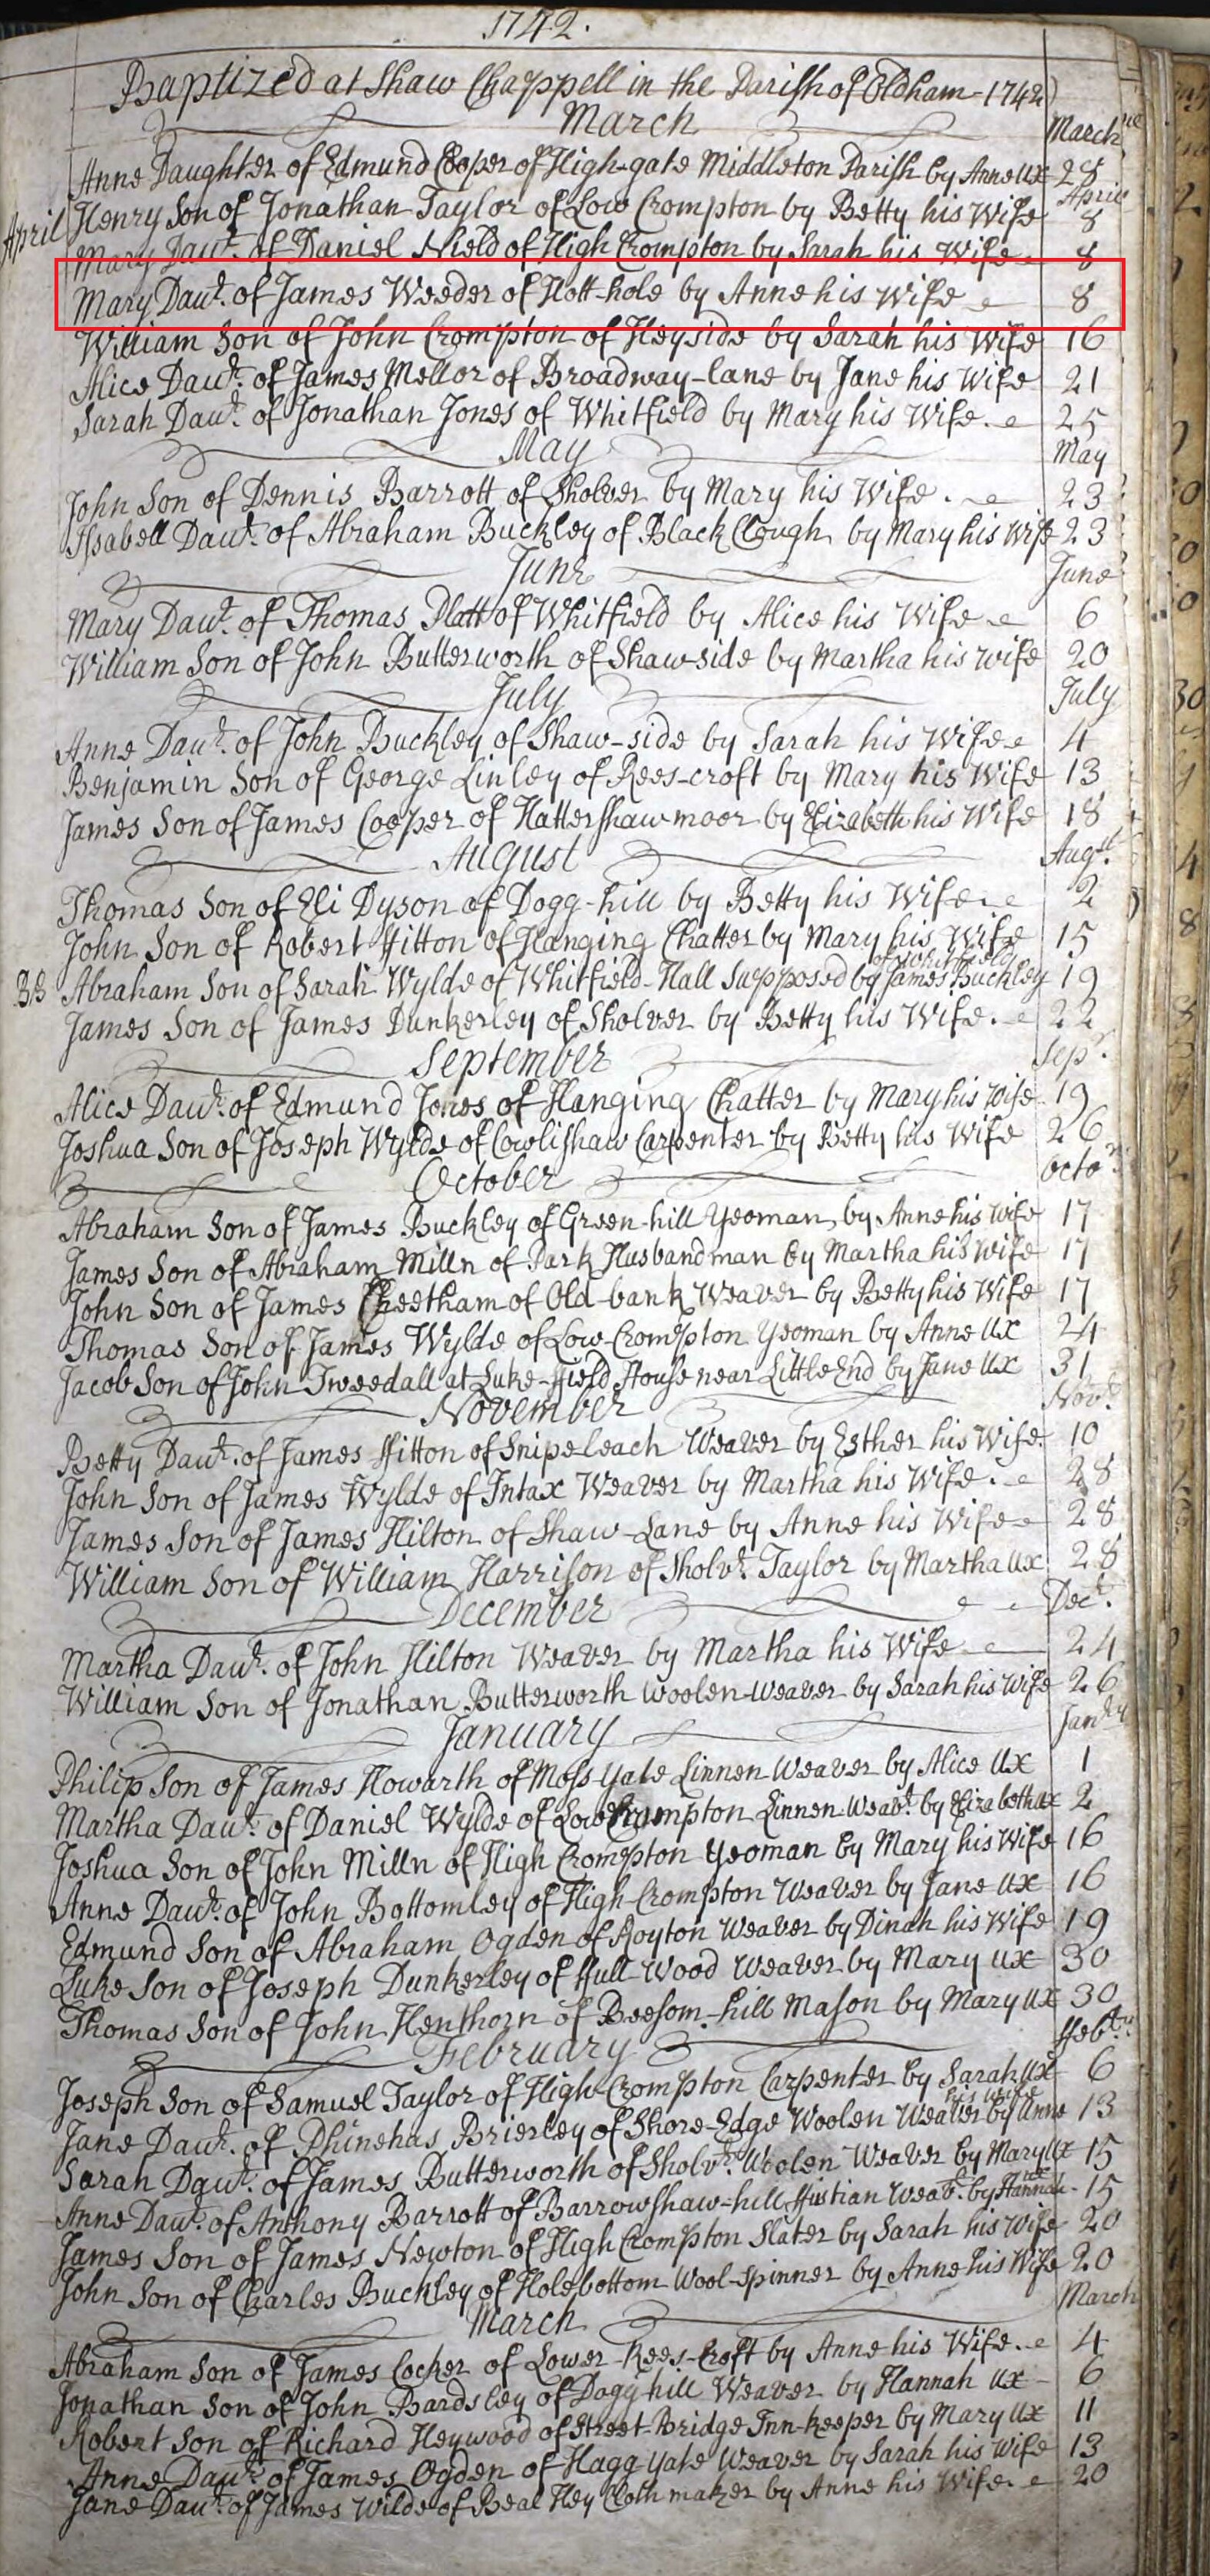 1742.
Baptized at Shaw Chappell in the Parish of Oldham - 1742
March March
Anne Daughter of Edmund Cooper of High-gate Middleton Parish by Anne ux 28
April
April Henry Son of Jonathan Taylor of Low Crompton by Betty his Wife 8
Mary Daut. of Daniel Nield of High Crompton by Sarah his Wife 8
Mary Daut. of James Weeder of Nott-hole by Anne his Wife 8
William Son of John Crompton of Heyside by Sarah his Wife 16
Alice Daut. of James Mellor of Broadway-lane by Jane his Wife 21
Sarah Daut. of Jonathan Jones of Whitfield by Mary his Wife. 25
May May
John Son of Dennis Barrott of Sholver by Mary his Wife. 23
Issabell Daut. of Abraham Buckley of Black Clough by Mary his Wife 23
June June
Mary Daut. of Thomas Platt of Whitfield by Alice his Wife 6
William Son of John Butterworth of Shaw-side by Martha his wife 20
July July
Anne Daut. of John Buckley of Shaw-side by Sarah his Wife 4
Benjamin Son of George Linley of Rees-croft by Mary his Wife 13
James Son of James Cooper of Hattershaw moor by Elizabeth his Wife 18
August Augt.
Thomas Son of Eli Dyson of Dogg-hill by Betty his Wife 2
John Son of Robert Hitton of Hanging Chatter by Mary his Wife 15
of Whitfield
BB Abraham Son of Sarah Wylde of Whitfield-Hall Supposed by James Buckley 19
James Son of James Dunkerley of Sholver by Betty his Wife. 22
September Sepr.
Alice Daut. of Edmund Jones of Hanging Chatter by Mary his Wife 19
Joshua Son of Joseph Wylde of Cowlishaw Carpenter by Betty his Wife 26
October Octo
Abraham Son of James Buckley of Green-hill Yeoman by Anne his Wife 17
James Son of Abraham Milln of Park Husbandman by Martha his Wife 17
John Son of James Cheetham of Old-bank Weaver by Betty his Wife 17
Thomas Son of James Wylde of Low-Crompton Yeoman by Anne Ux 24
Jacob Son of John Tweedall at Luke-ffield House near Little End by Jane Ux 31
November Novr.
Betty Daut. of James ffitton of Snipeleach Weaver by Esther his Wife. 10
John Son of James Wylde of Intax Weaver by Martha his Wife. 28
James Son of James Hilton of Shaw-Lane by Anne his Wife 28
William Son of William Harrison of Sholvr. Taylor by Martha Ux 28
December Decr.
Martha Daut. of John Hilton Weaver by Martha his Wife 24
William Son of Jonathan Butterworth Woolen-Weaver by Sarah his Wife 26
January
Philip Son of James Howarth of Moss Yate Linnen Weaver by Alice Ux 1
Martha Daut. of Daniel Wylde of Low Crompton Linnen-Weavr. by Elizabeth ux 2
Joshua Son of John Milln of High Crompton Yeoman by Mary his Wife 16
Anne Daut. of John Bottomley of High-Crompton Weaver by Jane Ux 16
Edmund Son of Abraham Ogden of Royton Weaver by Dinah his Wife 19
Luke Son of Joseph Dunkerley of ffull Wood Weaver by Mary ux 30
Thomas Son of John Henthorn of Beesom-hill Mason by Mary Ux 30
February
Joseph Son of Samuel Taylor of High-Crompton Carpenter by Sarah Ux 6
his Wife
Jane Daut. of Phinehas Brierley of Shore-Edge Woolen Weaver by Anne 13
Sarah Daut. of James Butterworth of Sholvr. Woolen Weaver by Mary Ux 15
Anne Daut. of Anthony Barrott of Barrowshaw-hill ffustian Weavr. by Hannah 15
James Son of James Newton of High Crompton Slater by Sarah his Wife 20
John Son of Charles Buckley of Holebottom Wool-spinner by Anne his Wife 20
March March
Abraham Son of James Cocker of Lower-Rees-Croft by Anne his Wife. 4
Jonathan Son of John Bardsley of Dogg hill Weaver by Hannah Ux 6
Robert Son of Richard Heywood of Street-Bridge Inn-keeper by Mary Ux 11
Anne Daut. of James Ogden of Hagg Yate Weaver by Sarah his Wife 13
Jane Daut. of James Wilde of Beal Hey Cloth maker by Anne his Wife. 20